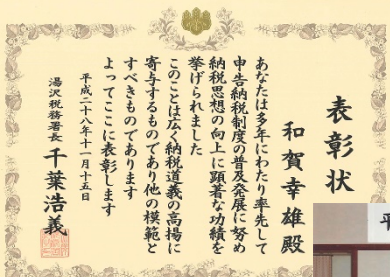 表彰状
和賀幸雄殿
あなたは多年にわたり率先して
申告納税制度の普及発展に努め
納税思想の向上に顕著な功績を
挙げられました
このことは広く納税道義の高揚に
寄与するものであり他の模範と
すべきものであります
よってここに表彰します
平成二十八年十一月十五日
湯沢税務署長 千葉浩義
平